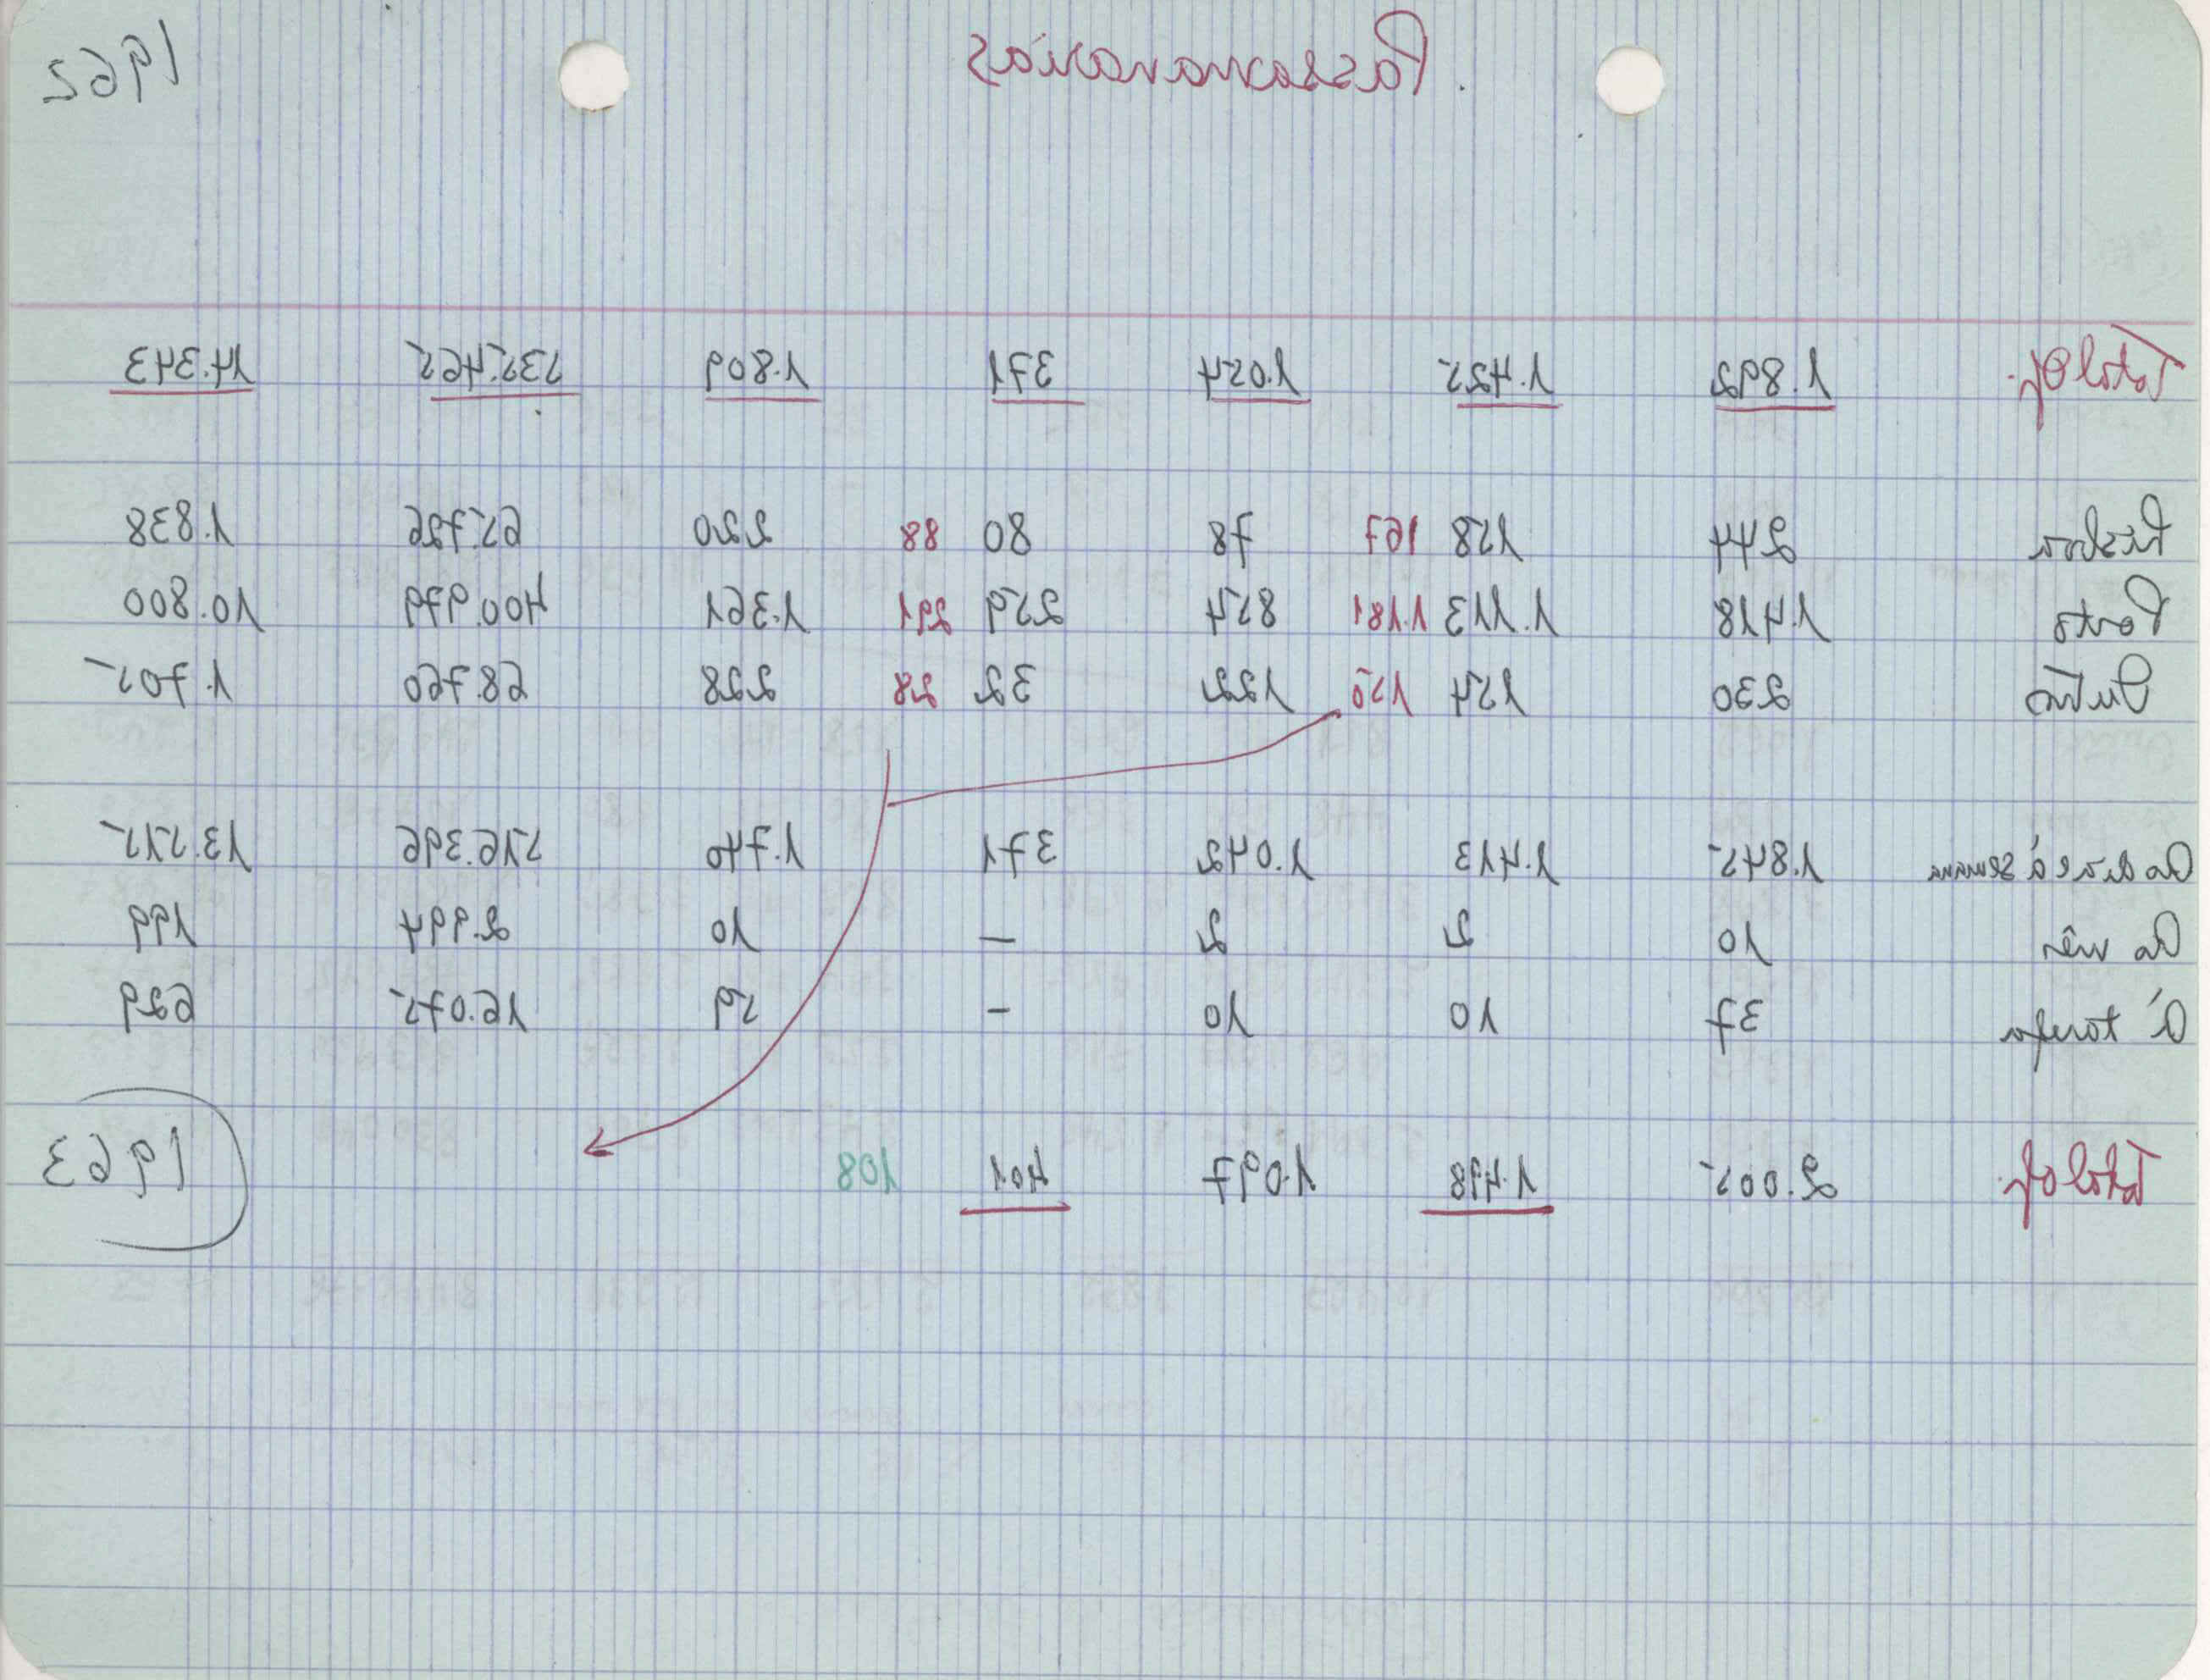 Passamanarias 1962
Total Of. 1.892 1.425 1.054 371 1.809 535.465 14.343
Lisboa 244 158 167 78 80 88 220 65.726 1.838
Porto 1.418 1.113 1.181 854 259 291 1.361 400.979 10.800
Outros 230 154 150 122 32 28 228 68.760 1.705
Ao dia e à semana 1.845 1.413 1.042 371 1.740 516.396 13.515
Ao mês 10 2 2 — 10 2.994 199
À tarefa 37 10 10 - 59 16.075 629
Total Of. 2.005 1.498 1.097 401 108 1963